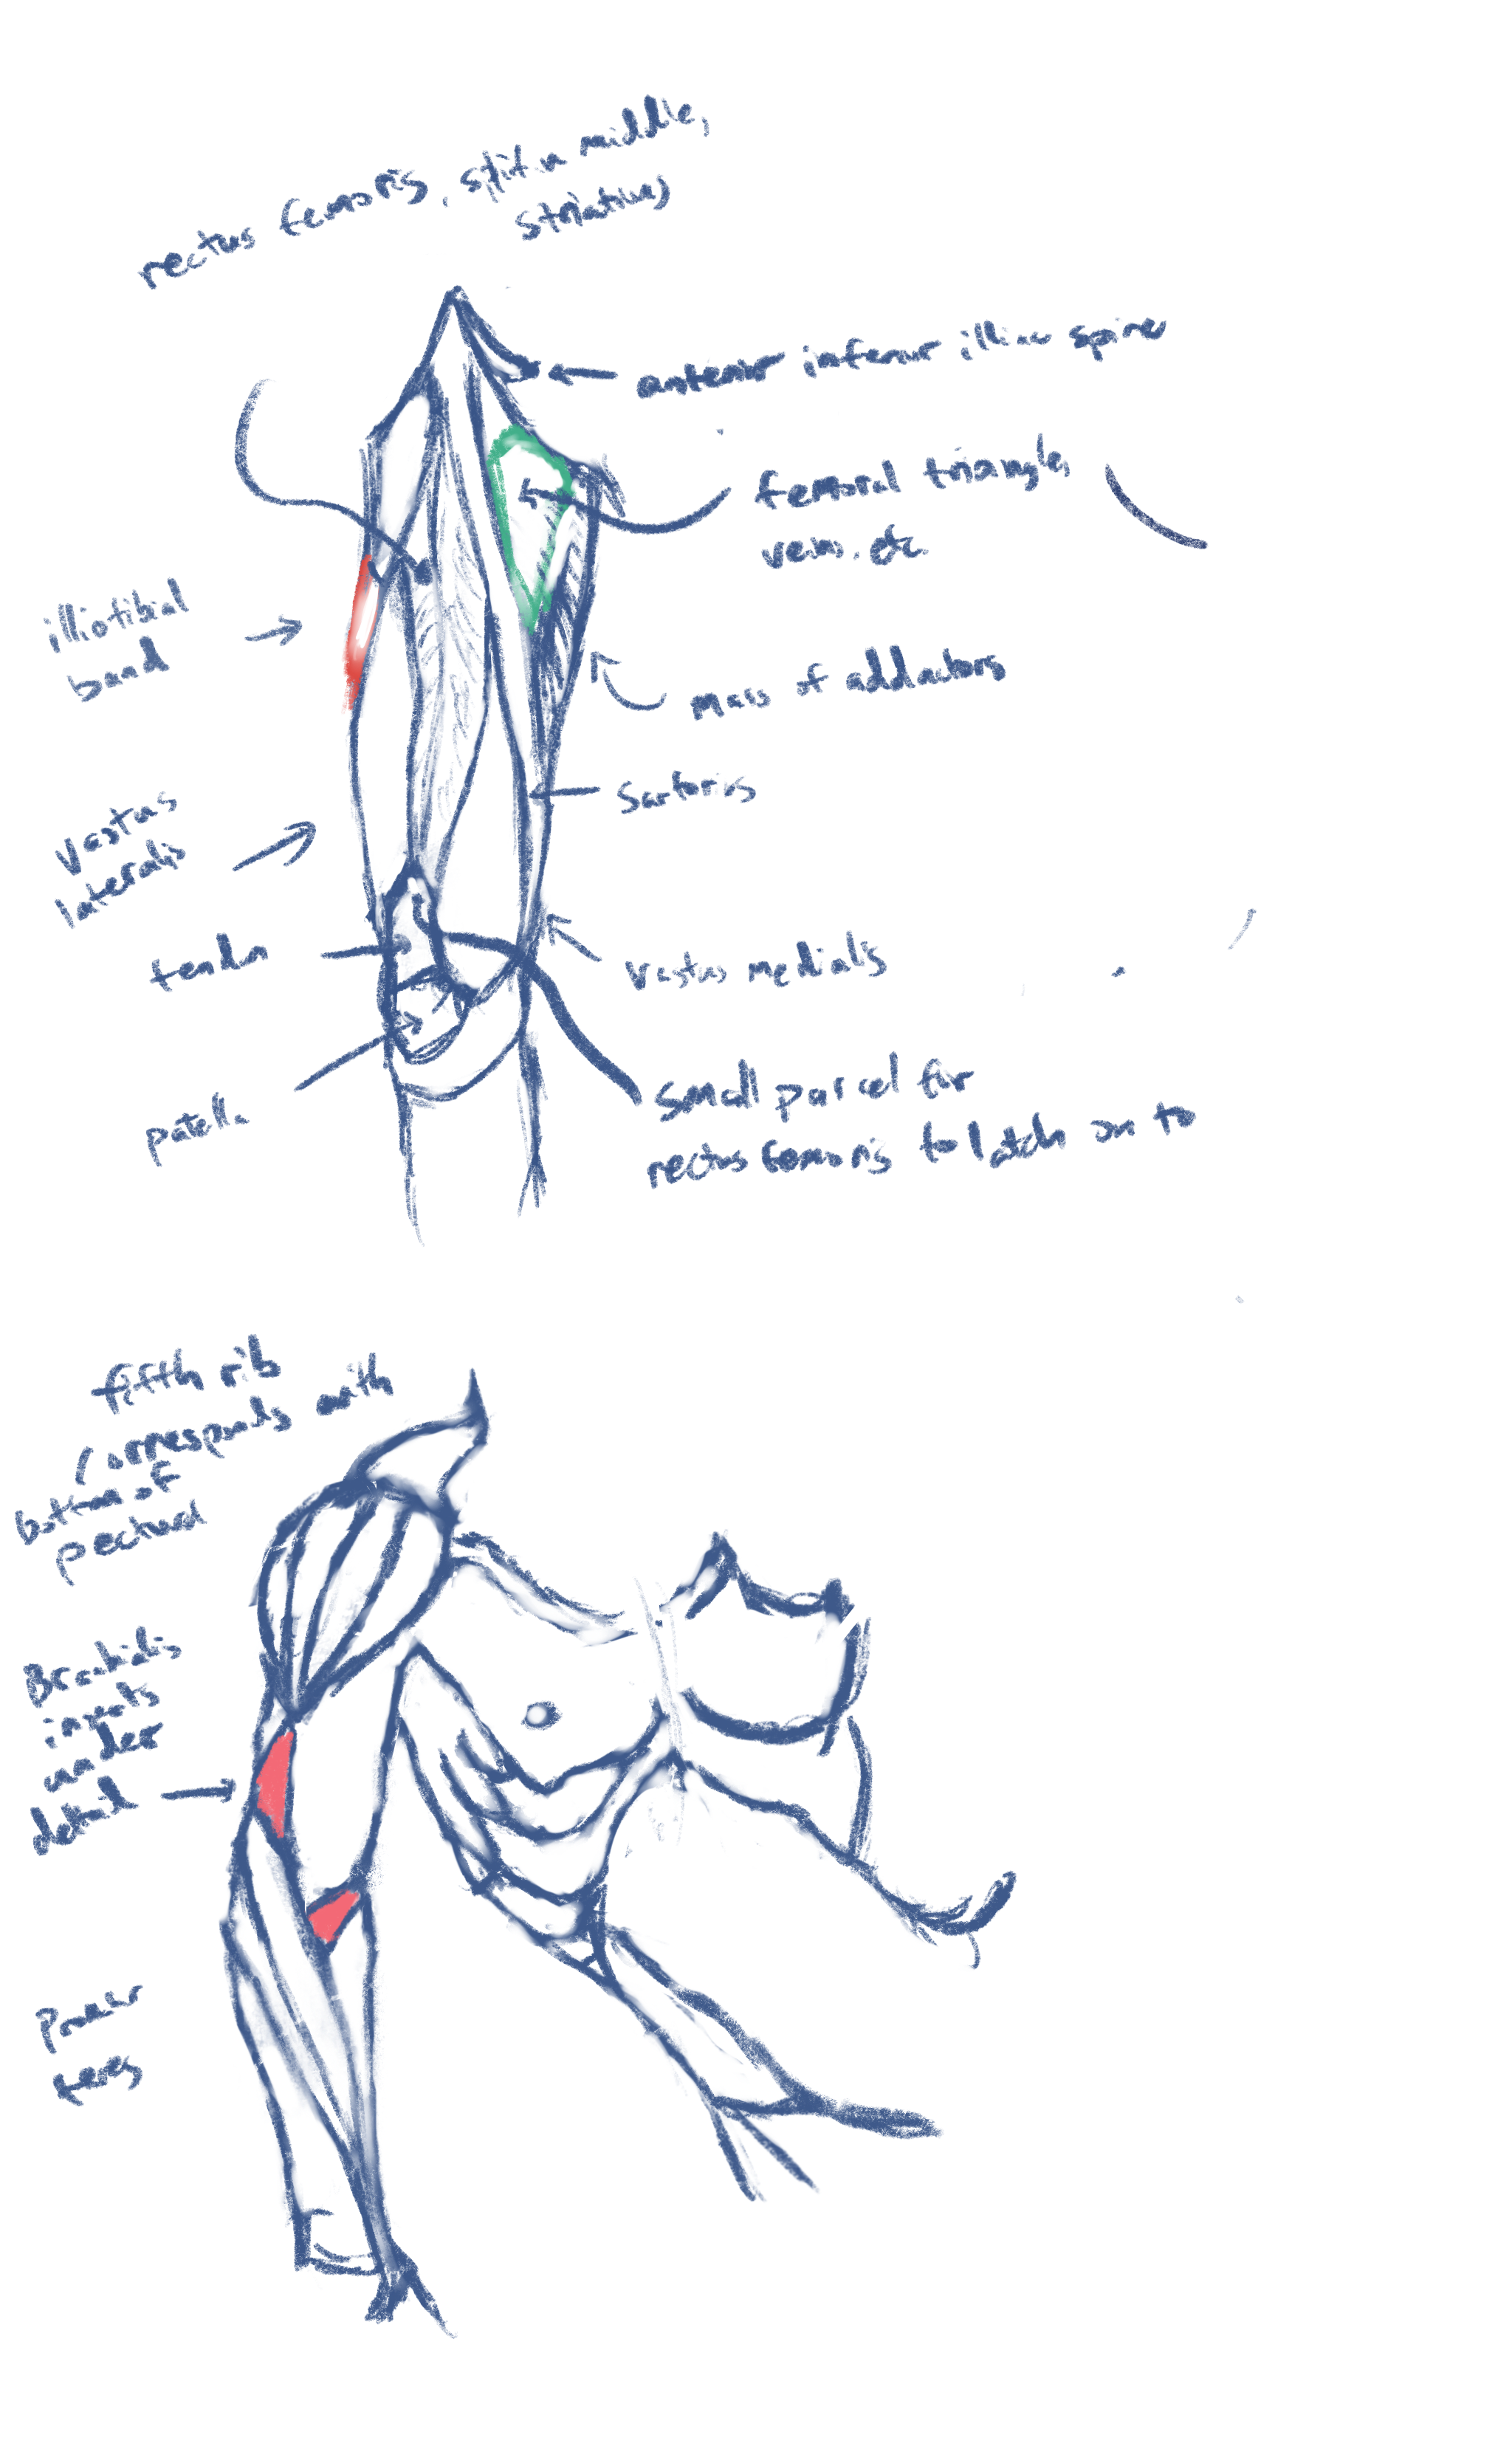 rectus femoris, split in middle,
striations
anterior inferior illiac spine
femoral triangle,
veins. etc.
illiotibial
band
mass of adductors
Sartorius
Vastus
lateralis
tendon
vastus medialis
patella
small parcel for
rectus femoris to latch on to
fifth rib
corresponds with
bottom of
pectoral
Brachialis
inserts
under
detoid
Pronator
teres